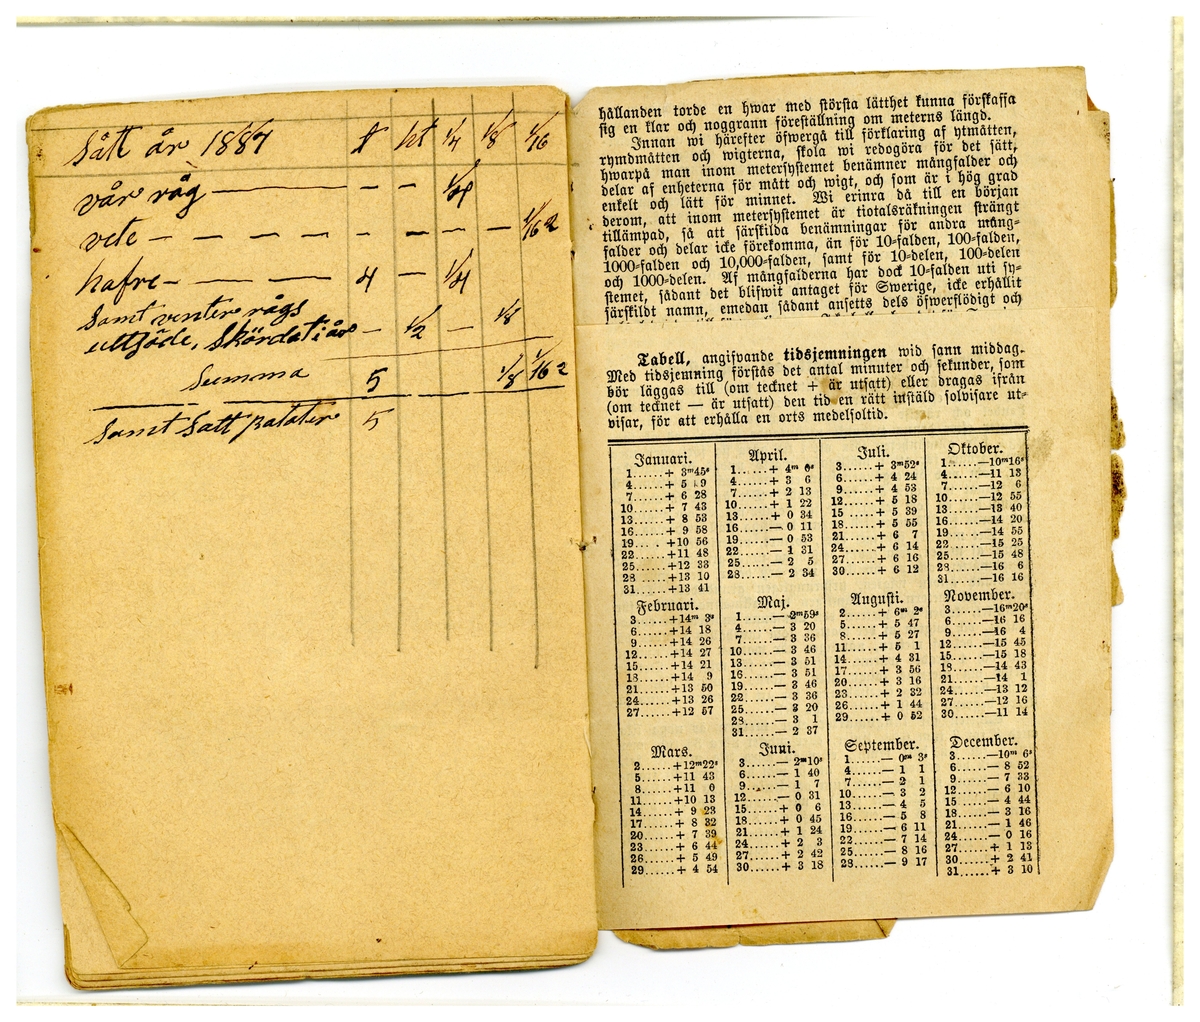 Sått år 1887 t ht 1/4 1/8 1/16
vår råg — — — 1/4
vete — — — — — — — — — 1/16 2
hafre — — — 4 — 1/4
Samt venter rågs
utsjäde, Skördat i år — 1/2 — 1/8
Summa 5 1/8 1/16 2
Samt Satt patater 5
hållanden torde en hwar med största lätthet kunna förskaffa
sig en klar och noggrann föreställning om meterns längd.
Innan wi härefter öfwergå till förklaring af ytmåtten,
rymdmåtten och wigterna, skola wi redogöra för det sätt,
hwarpå man inom metersystemet benämner mångfalder och
delar af enheterna för mått och wigt, och som är i hög grad
enkelt och lätt för minnet. Wi erinra då till en början
derom, att inom metersystemet är tiotalsräkningen strängt
tillämpad, så att särskilda benämningar för andra mång-
falder och delar icke förekomma, än för 10-falden, 100-falden,
1000-falden och 10,000-falden, samt för 10-delen, 100-delen
och 1000-delen. Af mångfalderna har dock 10-falden uti sy-
stemet, sådant det blifwit antaget för Swerige, icke erhållit
särskildt namn, emedan sådant ansetts dels öfwerflödigt och
Tabell, angifvande tidsjemningen wid sann middag.
Med tidsjemning förstås det antal minuter och sekunder, som
bör läggas till (om tecknet + är utsatt) eller dragas ifrån
(om tecknet — är utsatt) den tid en rätt inställd solvisare ut-
visar, för att erhålla en orts medelsoltid.
Januari.
1......+ 3m45s
4......+ 5 9
7......+ 6 28
10......+ 7 43
13......+ 8 53
16......+ 9 58
19......+10 56
22......+11 48
25......+12 33
28......+13 10
31......+13 41
Februari.
3......+14m 3s
6......+14 18
9......+14 26
12......+14 27
15......+14 21
18......+14 9
21......+13 50
24......+13 26
27......+12 57
Mars.
2......+12m22s
5......+11 43
8......+11 0
11......+10 13
14......+ 9 23
17......+ 8 32
20......+ 7 39
23......+ 6 44
26......+ 5 49
29......+ 4 54
April.
1......+ 4m 0s
4......+ 3 6
7......+ 2 13
10......+ 1 22
13......+ 0 34
16......— 0 11
19......— 0 53
22......— 1 31
25......— 2 5
28......— 2 34
Maj.
1......— 2m59s
4......— 3 20
7......— 3 36
10......— 3 46
13......— 3 51
16......— 3 51
19......— 3 46
22......— 3 36
25......— 3 20
28......— 3 1
31......— 2 37
Juni.
3......— 2m10s
6......— 1 40
9......— 1 7
12......— 0 31
15......+ 0 6
18......+ 0 45
21......+ 1 24
24......+ 2 3
27......+ 2 42
30......+ 3 18
Juli.
3......+ 3m52s
6......+ 4 24
9......+ 4 53
12......+ 5 18
15......+ 5 39
18......+ 5 55
21......+ 6 7
24......+ 6 14
27......+ 6 16
30......+ 6 12
Augusti.
2......+ 6m 2s
5......+ 5 47
8......+ 5 27
11......+ 5 1
14......+ 4 31
17......+ 3 56
20......+ 3 16
23......+ 2 32
26......+ 1 44
29......+ 0 52
September.
1......— 0m 3s
4......— 1 1
7......— 2 1
10......— 3 2
13......— 4 5
16......— 5 8
19......— 6 11
22......— 7 14
25......— 8 16
28......— 9 17
Oktober.
1......—10m16s
4......—11 13
7......—12 6
10......—12 55
13......—13 40
16......—14 20
19......—14 55
22......—15 25
25......—15 48
28......—16 6
31......—16 16
November.
3......—16m20s
6......—16 16
9......—16 4
12......—15 45
15......—15 18
18......—14 43
21......—14 1
24......—13 12
27......—12 16
30......—11 14
December.
3......—10m 6s
6......— 8 52
9......— 7 33
12......— 6 10
15......— 4 44
18......— 3 16
21......— 1 46
24......— 0 16
27......+ 1 13
30......+ 2 41
31......+ 3 10